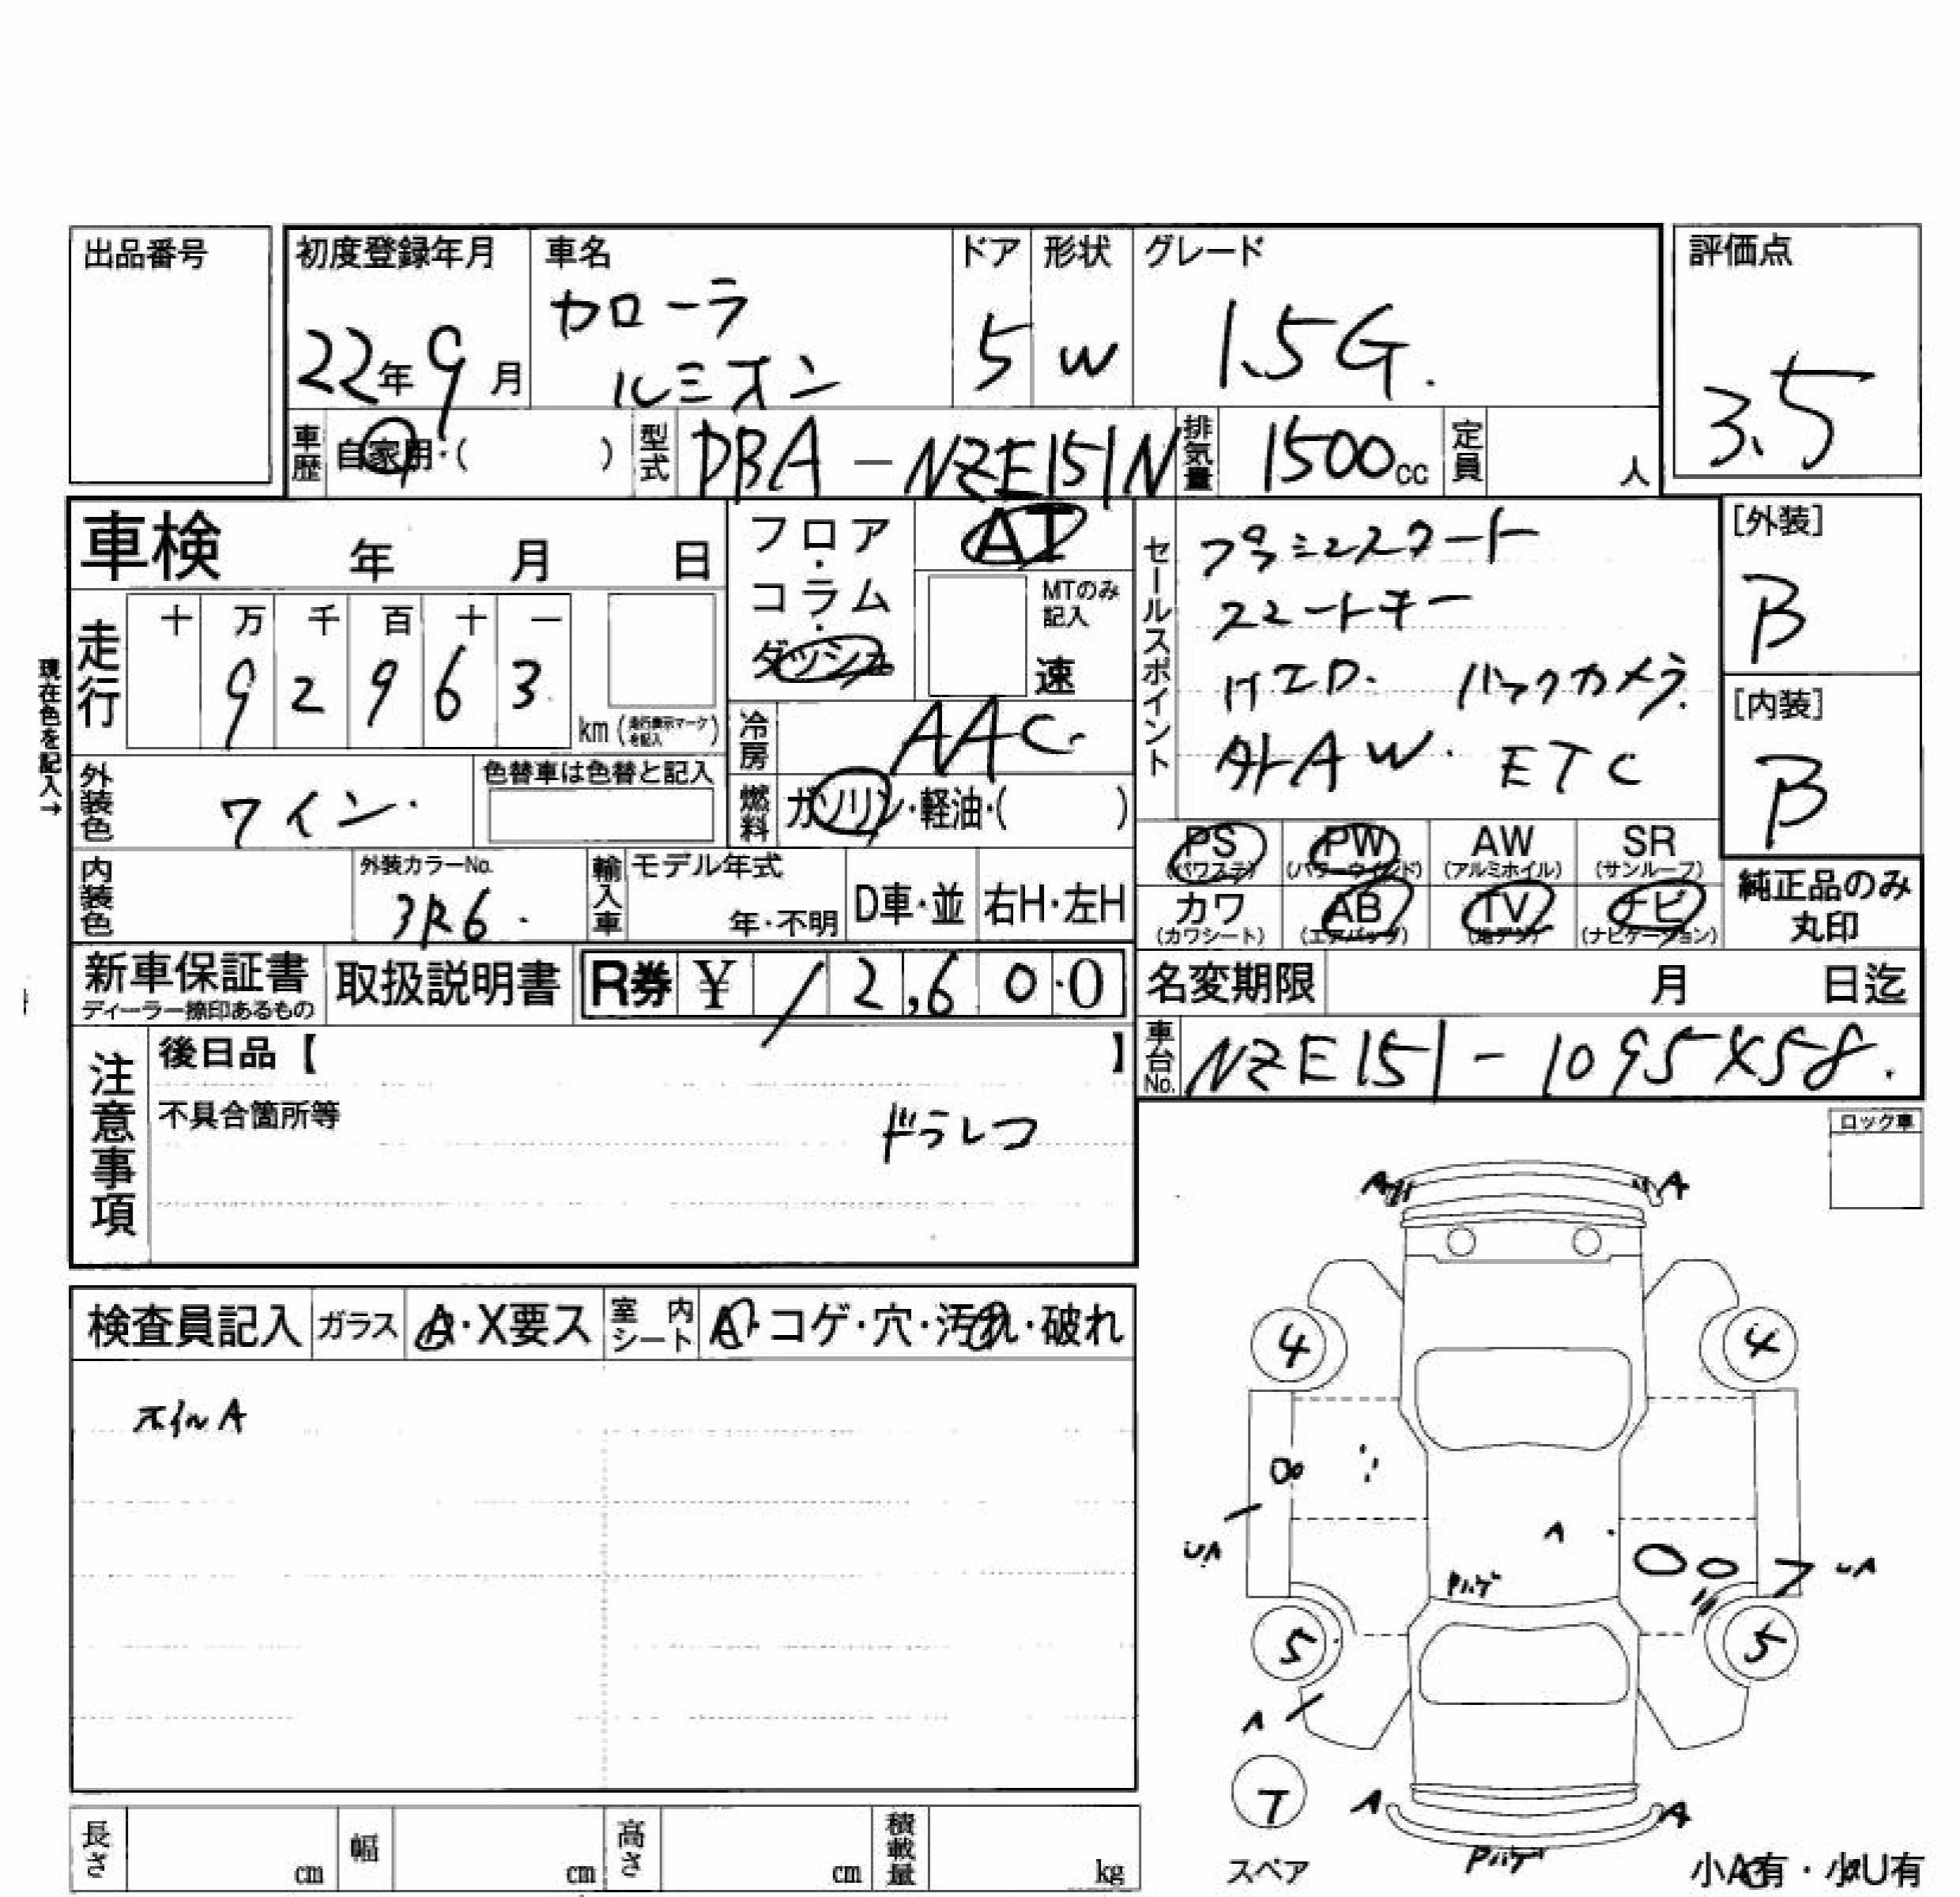 出品番号
初度登録年月
22年9月
車名
カローラ
ルミオン
ドア
5
形状
W
グレード
1.5G.
評価点
3.5
車歴
自家用・( )
型式
DBA-NZE151N
排気量
1500cc
定員
人
車検 年 月 日
フロア・コラム・ダッシュ
AT
MTのみ記入
速
セールスポイント
プッシュスタート
スマートキー
HID. バックカメラ.
外AW. ETC
[外装]
B
[内装]
B
現在色を記入→
走行
十 万 千 百 十 一
9 2 9 6 3
km(走行表示マークを記入)
冷房
AAC.
外装色
ワイン.
色替車は色替と記入
燃料
ガソリン・軽油・( )
PS
(パワステ)
PW
(パワーウインド)
AW
(アルミホイル)
SR
(サンルーフ)
カワ
(カワシート)
AB
(エアバッグ)
TV
(地デジ)
ナビ
(ナビゲーション)
純正品のみ
丸印
内装色
外装カラーNo.
3R6.
輸入車
モデル年式
年・不明
D車・並
右H・左H
新車保証書
ディーラー捺印あるもの
取扱説明書
R券 ¥ 12,600
名変期限 月 日迄
車台No.
NZE151-1095X58.
注意事項
後日品【 】
不具合箇所等
ドラレコ
ロック車
検査員記入
ガラス
A・X要ス
室内シート
A・コゲ・穴・汚れ・破れ
ホイルA
A A
4 4
UA
A
Pハゲ
UA
5 5
A
T
スペア
A A
Pハゲ
小A有・小U有
長さ
cm
幅
cm
高さ
cm
積載量
kg